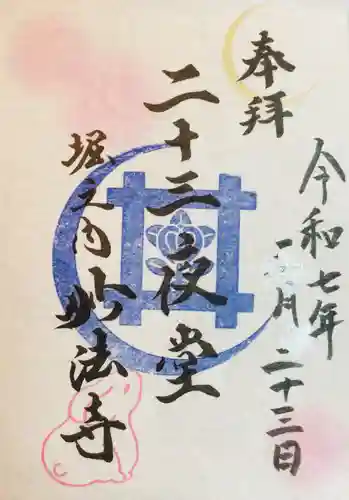 奉拝
令和七年
一月二十三日
二十三夜堂
堀之内妙法寺